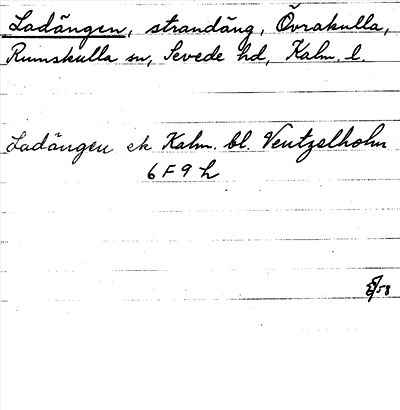 Ladängen, strandäng, Övrakulla,
Rumskulla sn, Sevede hd, Kalm. l.
Ladängen ek Kalm. bl. Ventzelholm
6 F 9 h